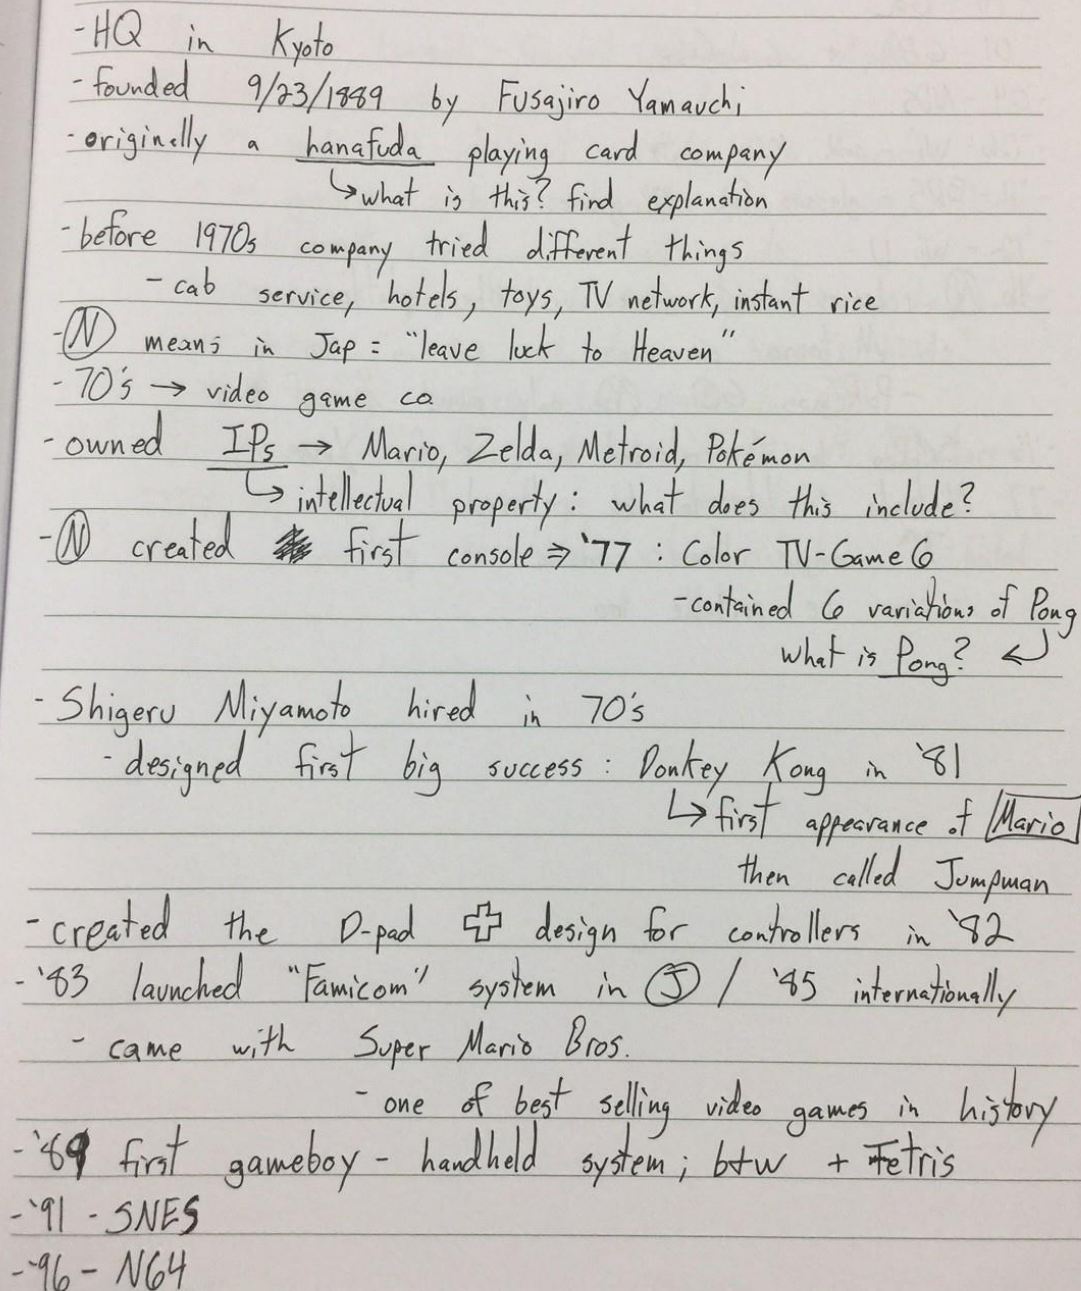 - HQ in Kyoto
- founded 9/23/1889 by Fusajiro Yamauchi
- originally a hanafuda playing card company
↳ what is this? find explanation
- before 1970s company tried different things
- cab service, hotels, toys, TV network, instant rice
- Ⓝ means in Jap = "leave luck to Heaven"
- 70's → video game co.
- owned IPs → Mario, Zelda, Metroid, Pokémon
↳ intellectual property: what does this include?
- Ⓝ created first console ⇒ '77 : Color TV-Game 6
- contained 6 variations of Pong
what is Pong? ↲
- Shigeru Miyamoto hired in 70's
- designed first big success: Donkey Kong in '81
↳ first appearance of Mario
then called Jumpman
- created the D-pad design for controllers in '82
- '83 launched "Famicom" system in Ⓙ / '85 internationally
- came with Super Mario Bros.
- one of best selling video games in history
- '89 first gameboy - handheld system; b+w + Tetris
- '91 - SNES
- '96 - N64